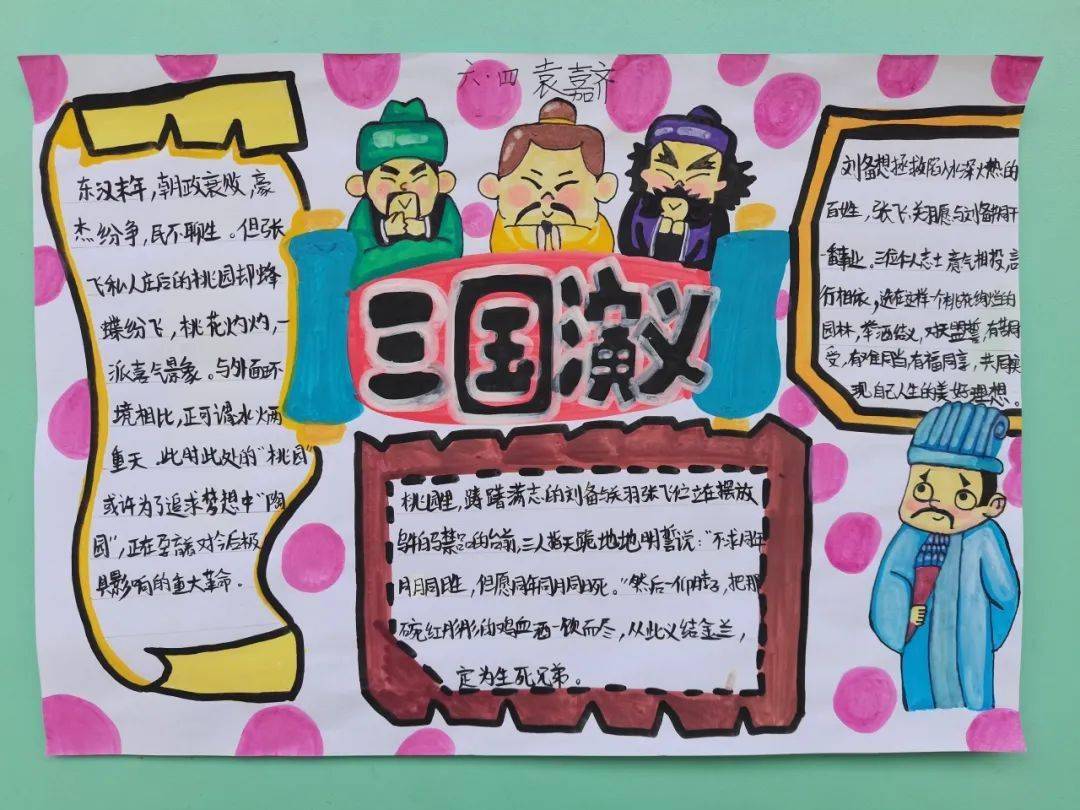 六·四 袁嘉齐
三国演义
东汉末年，朝政衰败，豪
杰纷争，民不聊生。但张
飞私人庄后的桃园却蜂
蝶纷飞，桃花灼灼，一
派喜气景象。与外面环
境相比，正可谓水火两
重天。此时此处的“桃园”
或许为了追求梦想中“陶
园”，正在孕育着对今后极
具影响的重大革命。
桃园里，踌躇满志的刘备与关羽张飞伫立在摆放
乌牛白马祭品的台前，三人指天跪地地明誓说：“不求同年
同月同日生，但愿同年同月同日死。”然后一仰脖子，把那
碗红彤彤的鸡血酒一饮而尽，从此义结金兰，
定为生死兄弟。
刘备想拯救陷入水深火热的
百姓，张飞、关羽愿与刘备共同干
一番事业。三位仁人志士意气相投，言
行相依，选在这样一个桃花绚烂的
园林，举酒结义，对天盟誓，有苦同
受，有难同当，有福同享，共同实
现自己人生的美好理想。